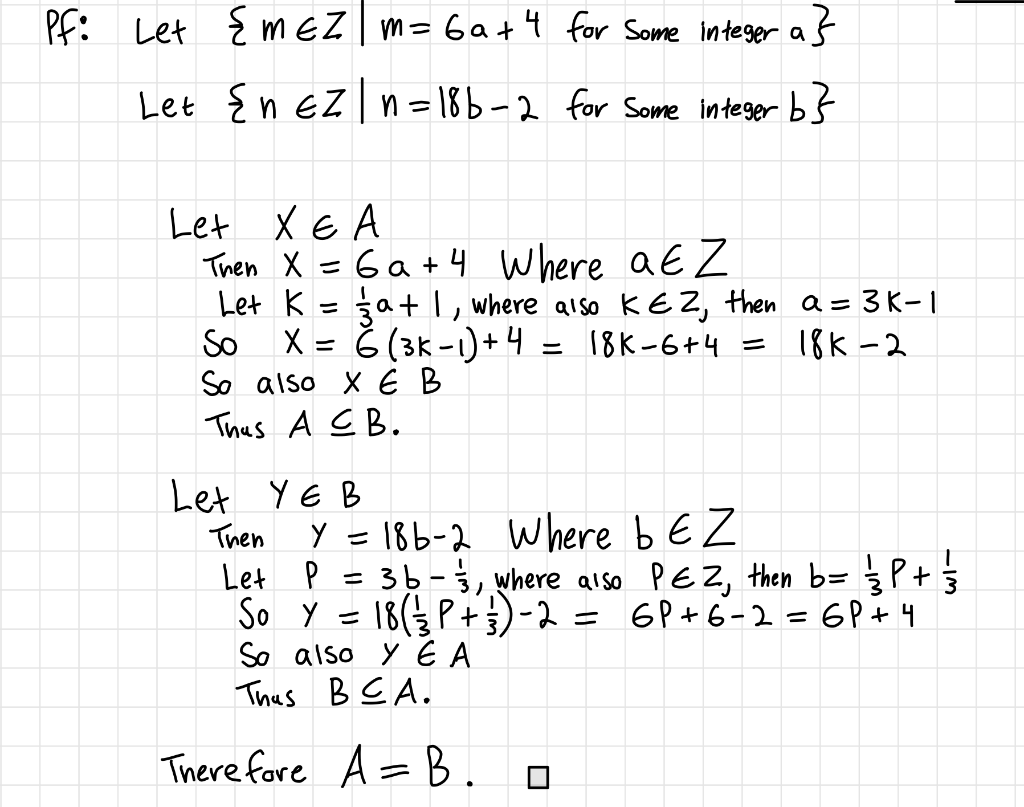 Pf: Let { m ∈ Z | m = 6a + 4 for some integer a}
Let { n ∈ Z | n = 18b - 2 for some integer b}
Let X ∈ A
Then X = 6a + 4 Where a ∈ Z
Let K = 1/3 a + 1, where also K ∈ Z, then a = 3K - 1
So X = 6(3K - 1) + 4 = 18K - 6 + 4 = 18K - 2
So also X ∈ B
Thus A ⊆ B.
Let Y ∈ B
Then Y = 18b - 2 Where b ∈ Z
Let P = 3b - 1/3, where also P ∈ Z, then b = 1/3 P + 1/3
So Y = 18(1/3 P + 1/3) - 2 = 6P + 6 - 2 = 6P + 4
So also Y ∈ A
Thus B ⊆ A.
Therefore A = B. □